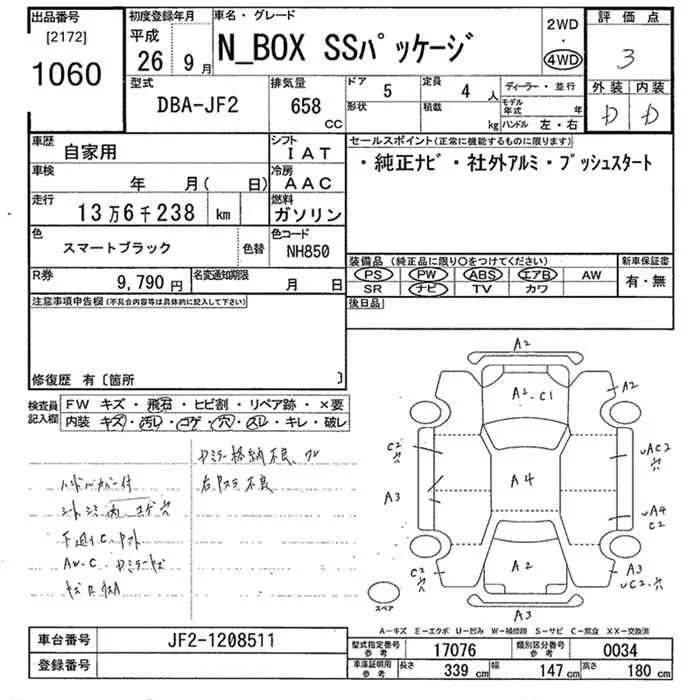 出品番号
[2172]
1060
初度登録年月
平成
26 年 9 月
車名・グレード
N_BOX SSパッケージ
2WD
・
4WD
評価点
3
外装 内装
D D
型式
DBA-JF2
排気量
658 CC
ドア 5
定員 4 人
形状
積載 kg
ディーラー・並行
モデル年式 年
ハンドル 左・右
車歴 自家用
シフト IAT
車検 年 月( 日)
冷房 AAC
走行 13万6千238 km
燃料 ガソリン
色 スマートブラック
色替
色コード NH850
R券 9,790 円
名変通知期限 月 日
セールスポイント(正常に機能するものに限ります)
・純正ナビ・社外アルミ・プッシュスタート
装備品 (純正品に限り○をつけてください)
PS PW ABS エアB AW
SR ナビ TV カワ
新車保証書
有・無
後日品
注意事項申告欄(不具合内容等は具体的に記入して下さい)
修復歴 有〔箇所 〕
検査員記入欄
FW キズ・飛石・ヒビ割・リペア跡・×要
内装 キズ・汚レ・コゲ・穴・スレ・キレ・破レ
ハンドルカバー付
右 不良
A2
A2・C1
A2
C2
穴
UAC2
穴
A3
A4
UA4
C2
C2
穴
A2
A3
UC2・穴
A3
スペア
A―キズ E―エクボ U―凹み W―補修跡 S―サビ C―腐食 XX―交換済
車台番号 JF2-1208511
登録番号
型式指定番号 参考 17076
類別区分番号 参考 0034
車庫証明用 参考 長さ 339 cm 幅 147 cm 高さ 180 cm